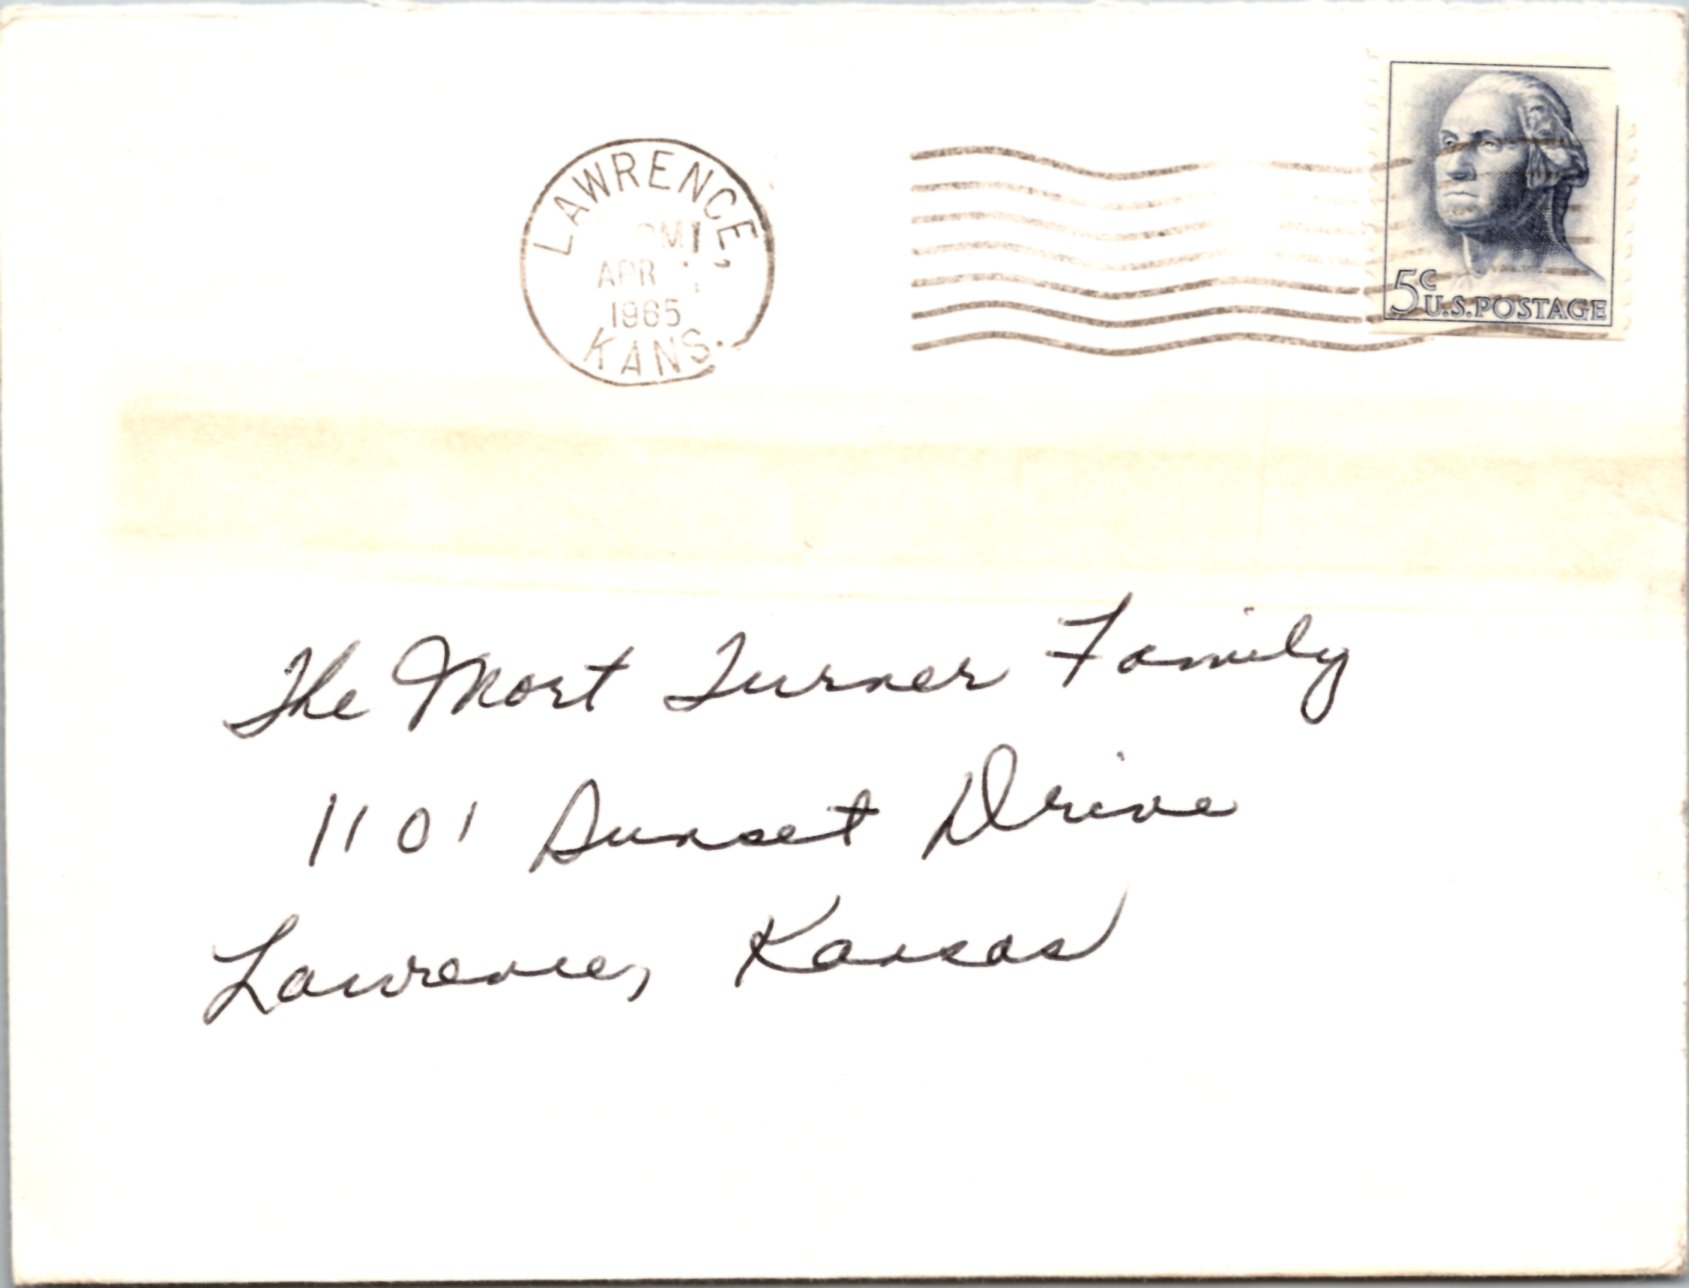 LAWRENCE,
PM
APR
1965
KANS.
5c
U.S. POSTAGE
The Mort Turner Family
1101 Sunset Drive
Lawrence, Kansas